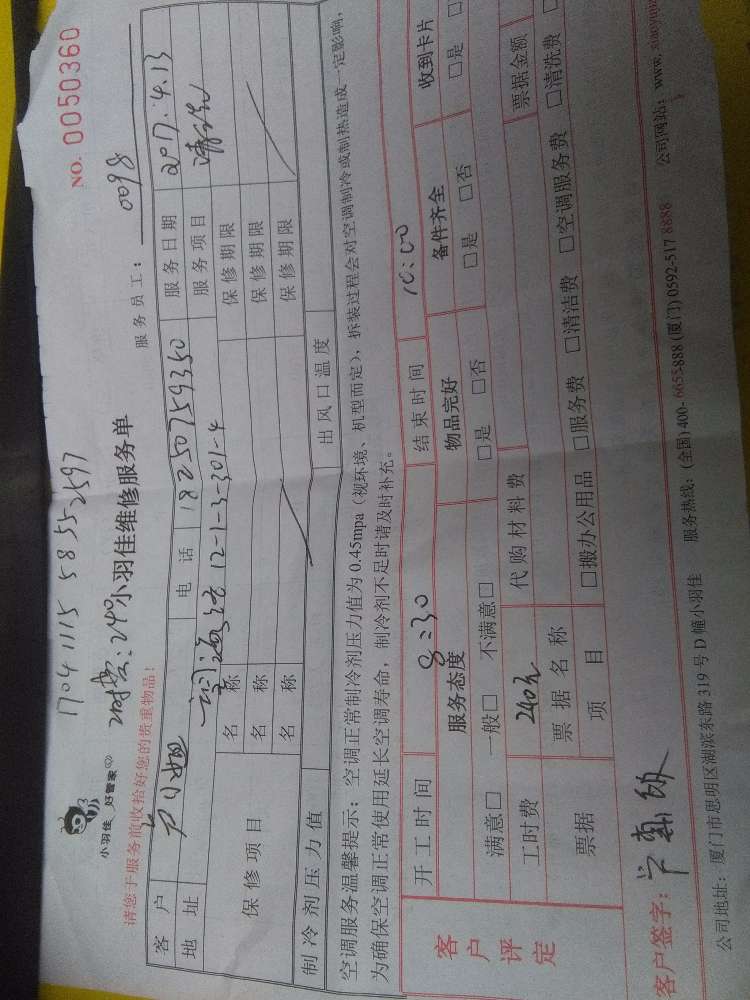 NO. 0050360
17041115 5855 2597
小羽佳 好管家
2时费:240
小羽佳维修服务单
请您于服务前收拾好您的贵重物品!
服务员工: 0098
客户 电话 18250759350 服务日期 2017.4.13
地址 12-1-3-301-4 服务项目 清洗
保修项目 名称 保修期限
名称 保修期限
名称 保修期限
制冷剂压力值 出风口温度
空调服务温馨提示:空调正常制冷剂压力值为0.45mpa(视环境、机型而定),拆装过程会对空调制冷或制热造成一定影响,
为确保空调正常使用延长空调寿命,制冷剂不足时请及时补充。
客户评定
开工时间 8:30 结束时间 10:00
服务态度 物品完好 备件齐全 收到卡片
满意□ 一般□ 不满意□ □是 □否 □是 □否 □是
工时费 240元 代购材料费 票据金额
票据 票据名称
项目 □搬办公用品 □服务费 □清洁费 □空调服务费 □清洗费
客户签字:
公司地址:厦门市思明区湖滨东路319号D幢小羽佳 服务热线:(全国)400-6655-888(厦门)0592-517 8688 公司网站:www.xiaoyujia